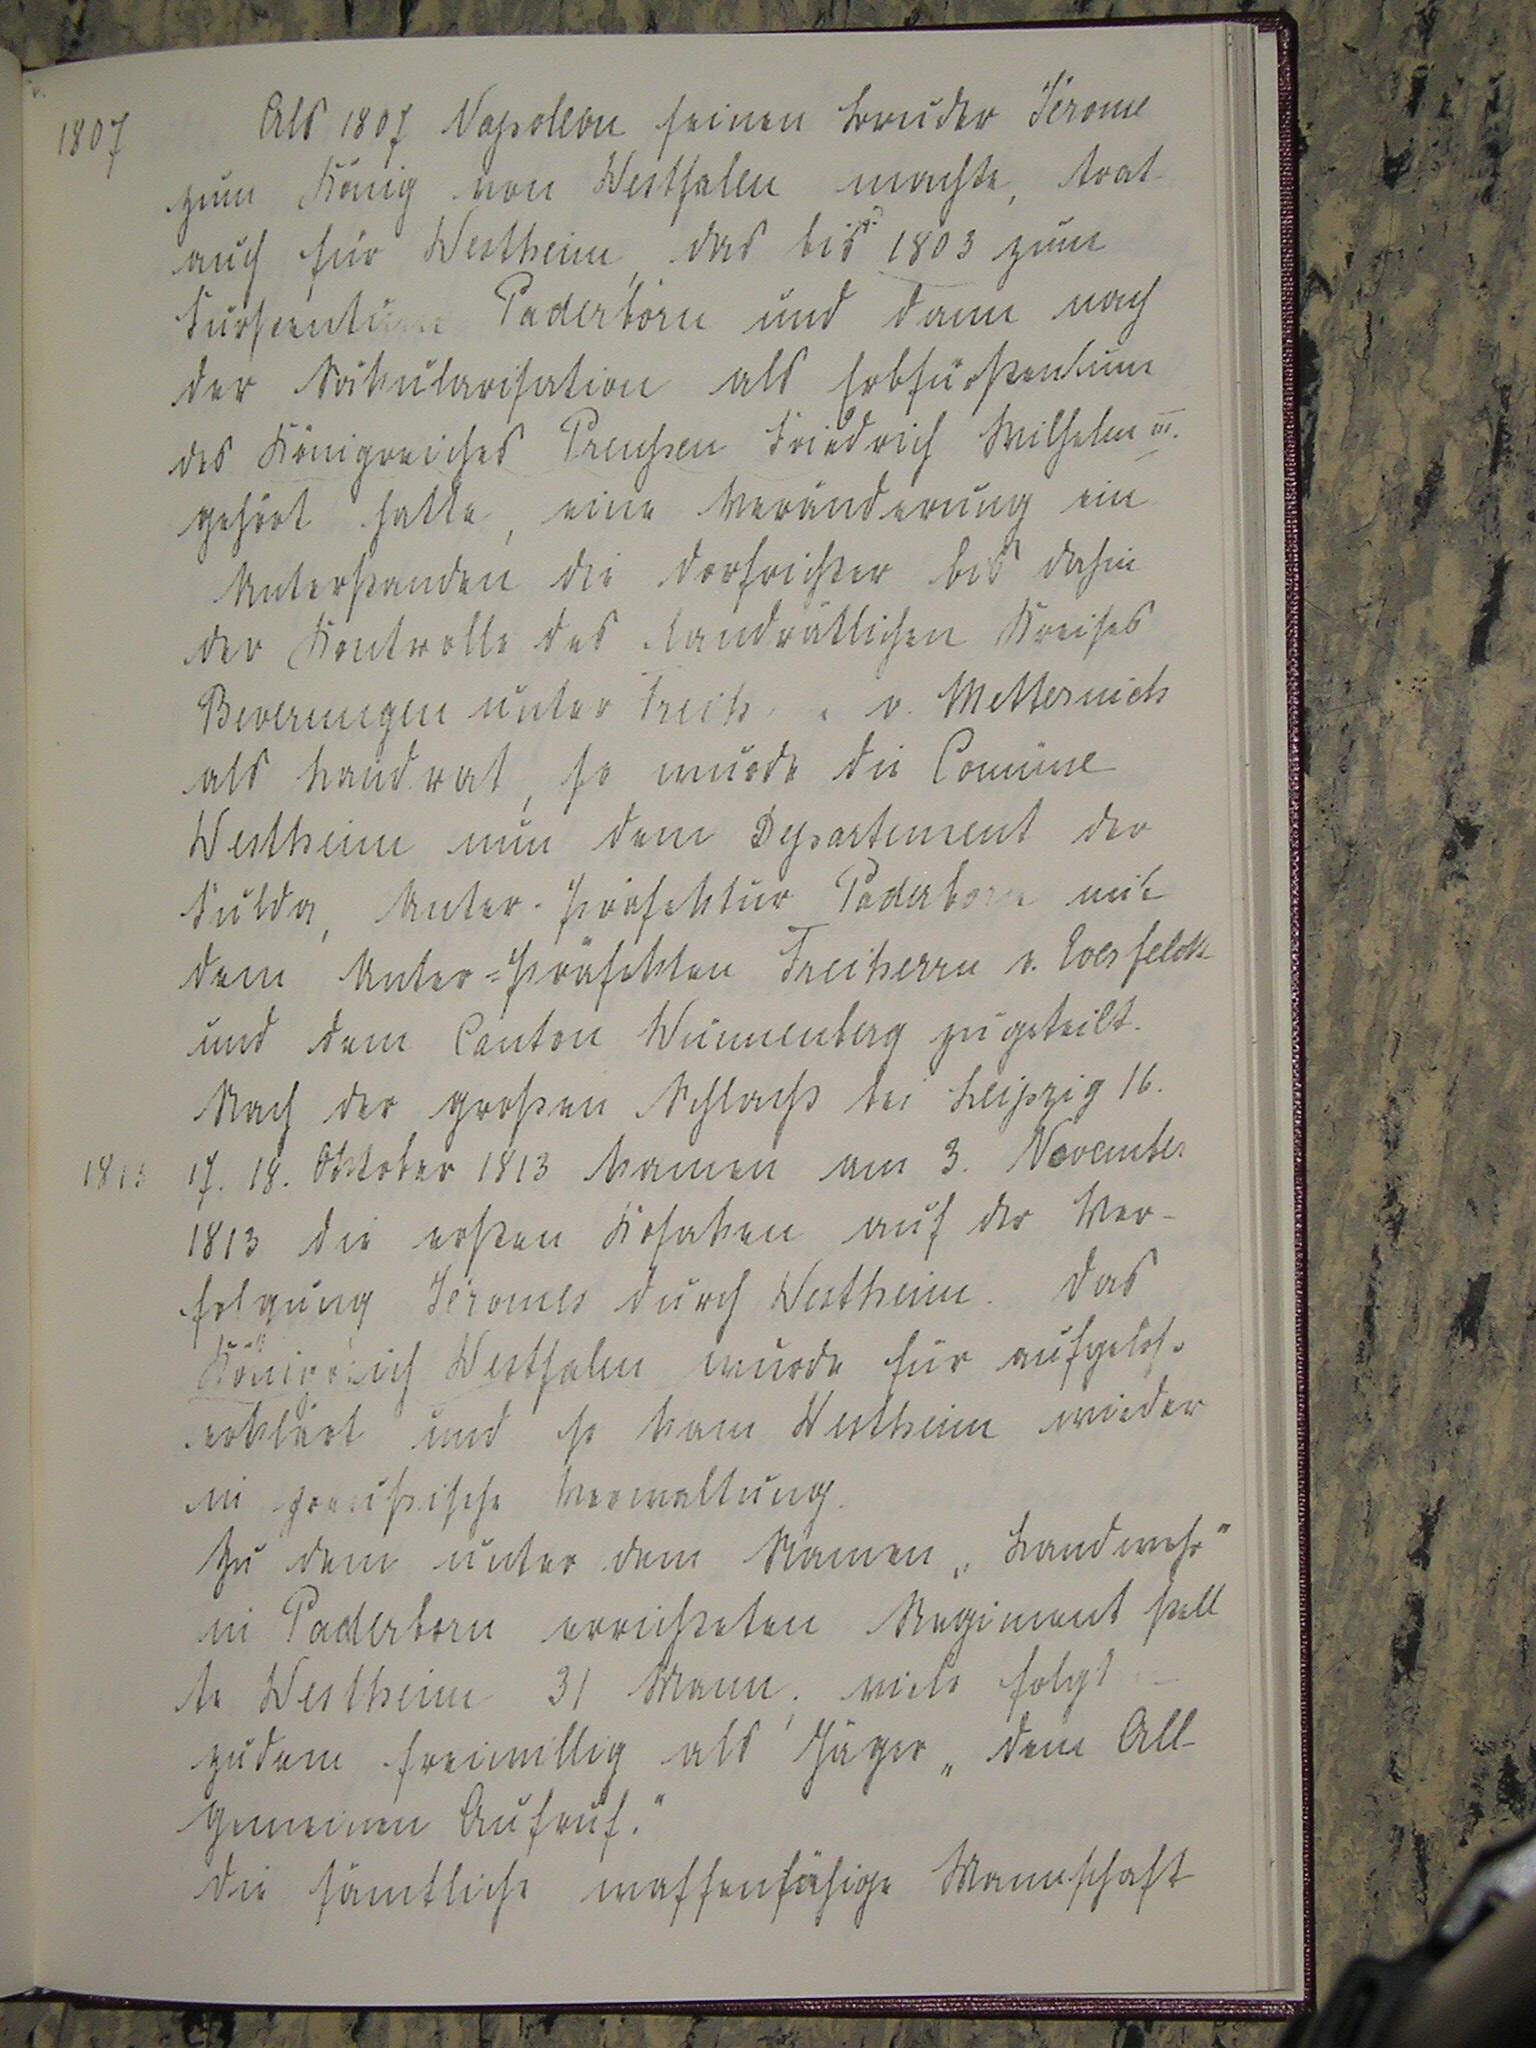 1807 Als 1807 Napoleon seinen Bruder Jérome
zum König von Westfalen machte, trat
auch für Westheim, das bis 1803 zum
Fürstentum Paderborn und dann nach
der Säkularisation als Erbfürstentum
des Königreiches Preußen Friedrich Wilhelm III.
gehört hatte, eine Veränderung ein
Unterstanden die Dorfrichter bis dahin
der Kontrolle des landrätlichen Kreises
Beverungen unter Freih. v. Metternich
als Landrat, so wurde die Comüne
Westheim nun dem Departement der
Fulda, Unter-Präfektur Paderborn mit
dem Unter-Präfekten Freiherrn v.
und dem Canton Wünnenberg zugeteilt.
Nach der großen Schlacht bei Leipzig 16.
1813 17. 18. Oktober 1813 kamen am 3. November
1813 die ersten Kosaken auf der Ver-
folgung Jéromes durch Westheim. Das
Königreich Westfalen wurde für aufgelöst
erklärt und so kam Westheim wieder
in preußische Verwaltung.
Zu dem unter dem Namen „Landwehr"
in Paderborn errichteten Regiment stell
te Westheim 31 Mann, viele folgt
zudem freiwillig als Jäger „dem All-
gemeinen Aufruf."
Die sämtliche waffenfähige Mannschaft